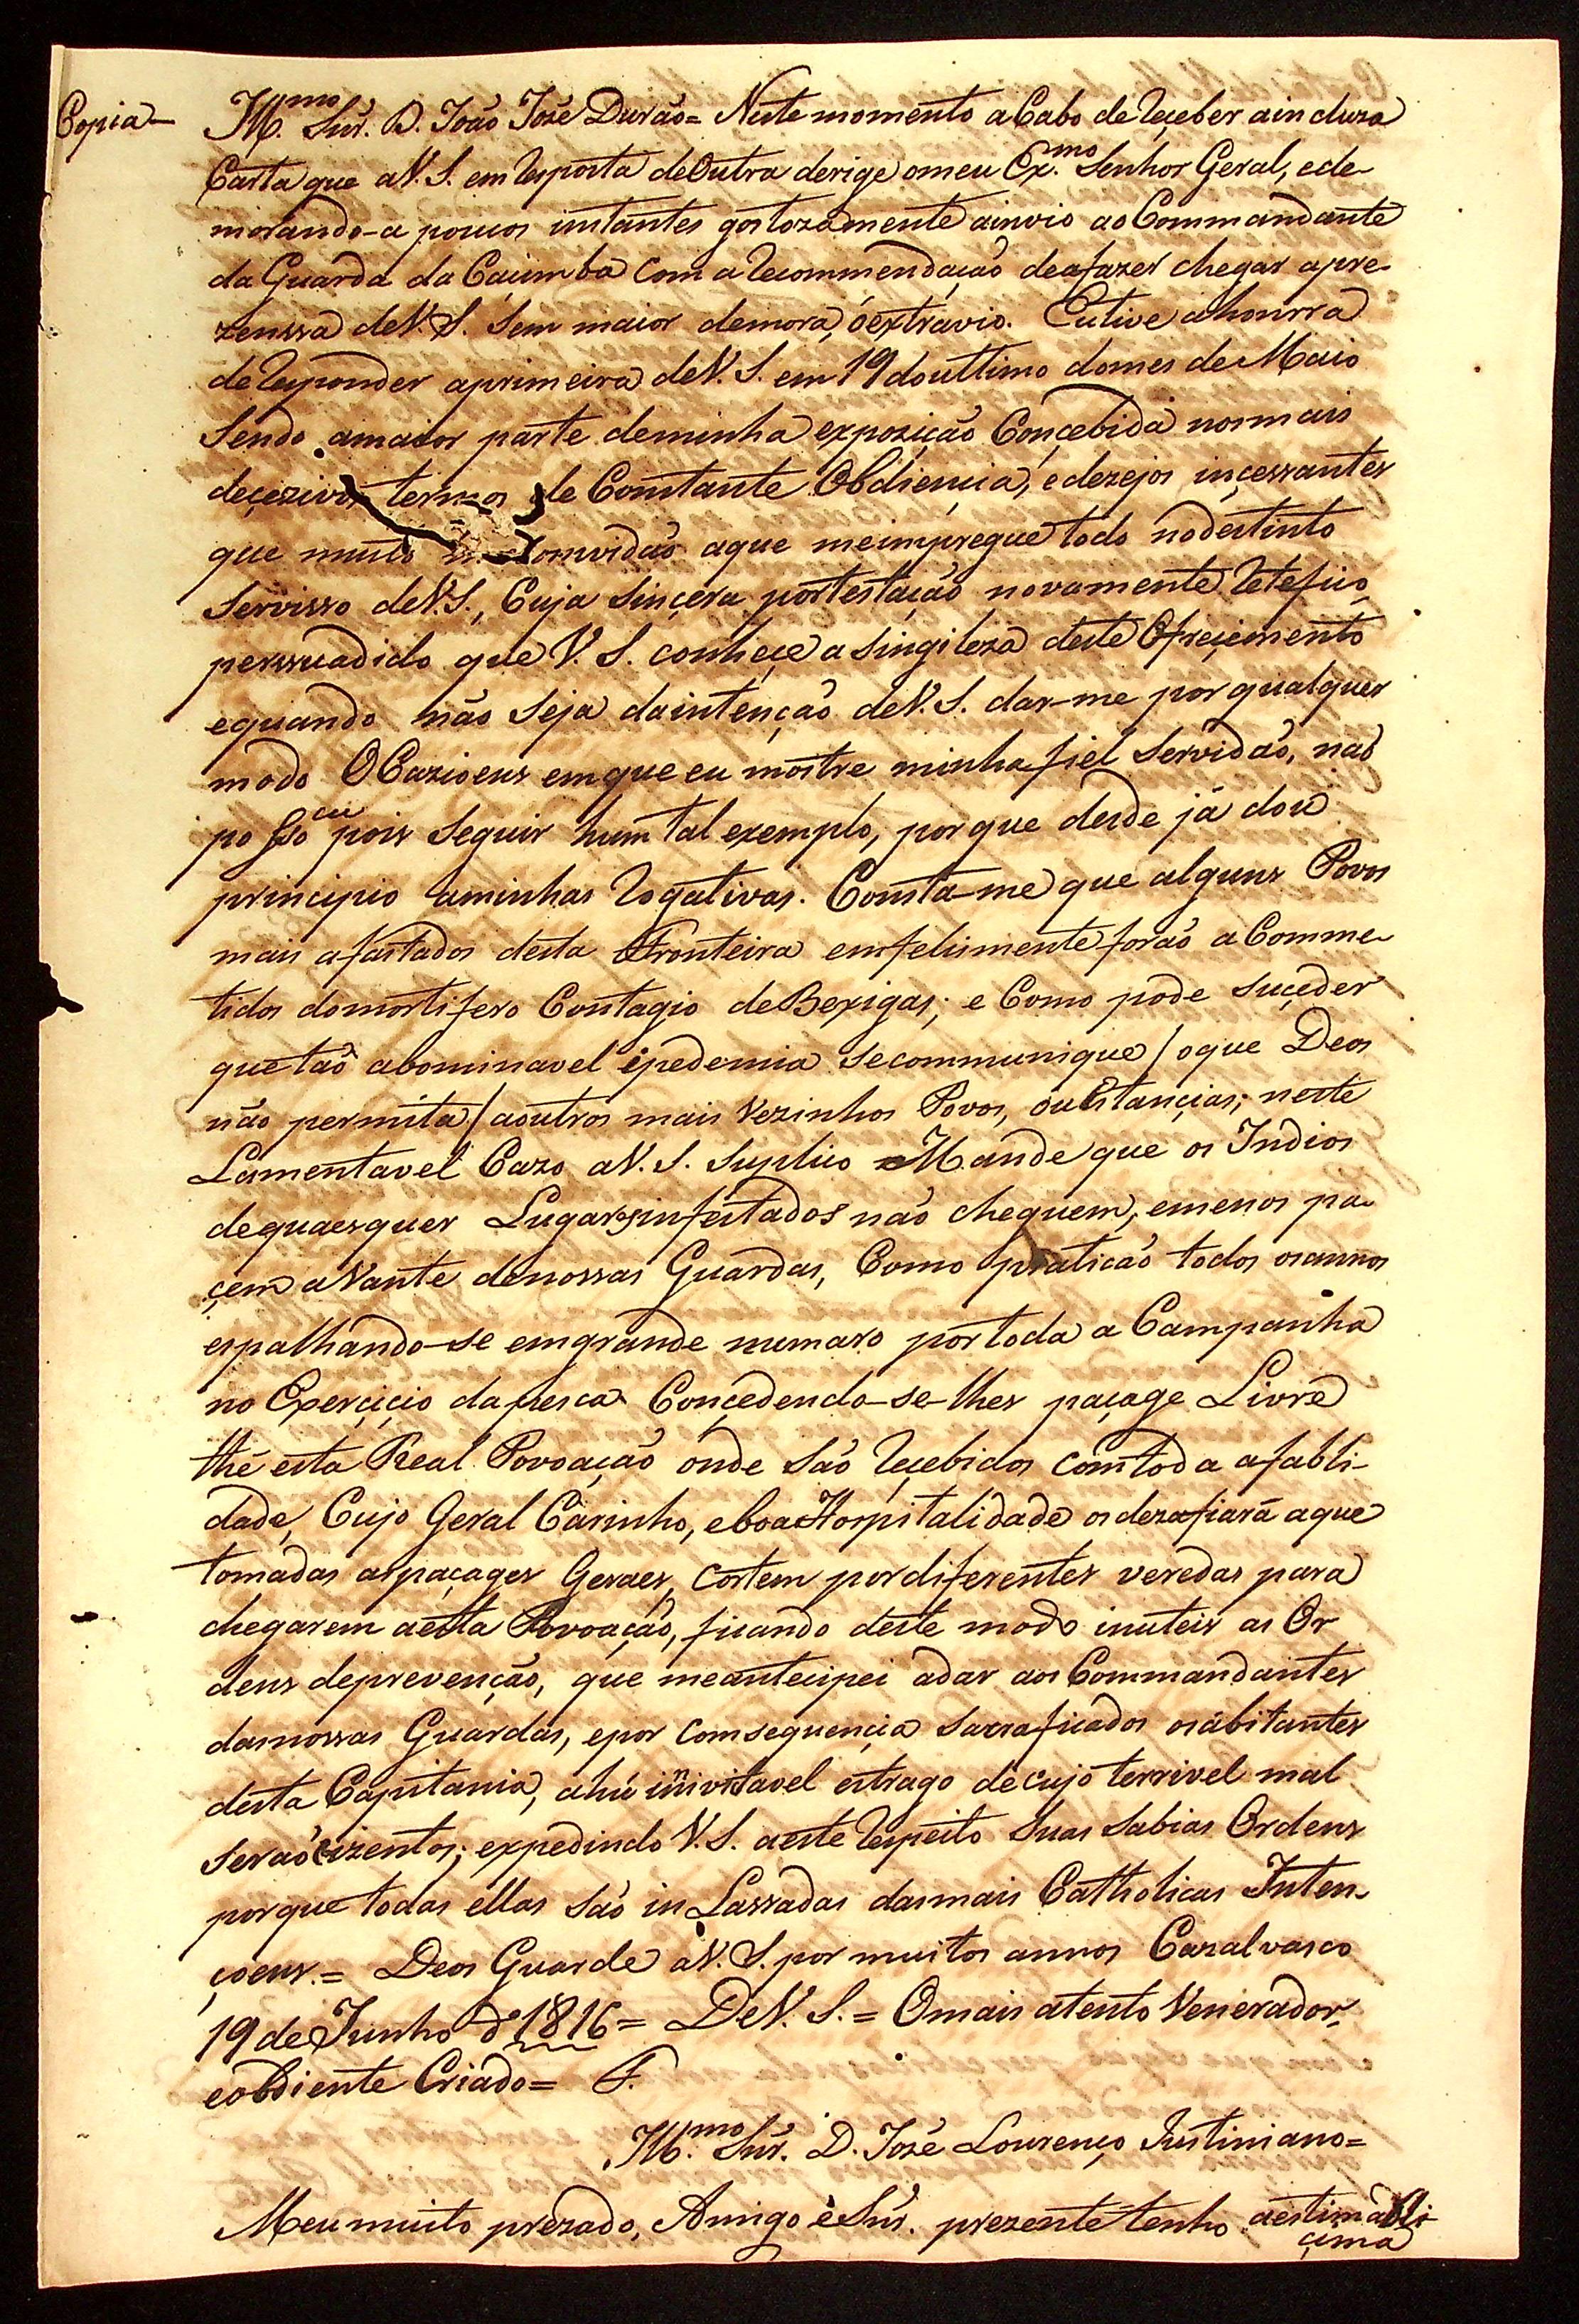 Copia—
Ill.mo Snr. D. João Joze Durão= Neste momento aCabo de Reçeber aincluza
Carta que aV.S. em Resposta deOutra derige omeu Ex.mo Senhor Geral, ede-
morando-a poucos instantes gostozamente ainvio ao Commandante
da Guarda da Caiumba com a Recommendação deafazer chegar apre-
zenssa deV.S. Sem maior demora, óextravio. Eutive ahonrra
de Responder aprimeira deV.S. em 19 doultimo domes de Maio
Sendo amaior parte deminha expozição Conçebida nosmais
deçezivos termos de Constante Obdiencia, edezejos inçessantes
que muito comvidão aque meimpregue todo nodestinto
Servisso deV.S., Cuja Sinçera portestação novamente Retefico,
perssuadido que V.S. conheçe a Singileza deste Ofreçimento
equando não Seja daintenção deV.S. dar-me por qualquer
modo OCazioens emque eu mostre minha fiel Servidão, não
posso eu pois Seguir hum tal exemplo, por que desde já dou
principio aminhas Rogativas. Consta-me que alguns Povos
mais afastados desta Fronteira emfelismente forão aComme-
tidos domortifero Contagio deBexigas; e Como pode Suçeder
que tão abominavel epedemia secommunique / oque Deos
não permita / aoutros mais Vezinhos Povos, ouEstançias; neste
Lamentavel Cazo aV.S. Suplico =Mande que os Indios
dequaesquer Lugares infestados não cheguem, emenos pa-
çem aVante denossas Guardas, Como praticão todos osannos
espalhando-se emgrande numaro por toda a Campanha
no Exerçiçio dapesca Conçedendo-se-lhes paçage Livre
thé esta Real Povoação onde São Reçebidos com toda afabli-
dade, Cujo Geral Carinho, eboa Hospitalidade os dezafiará aque
tomadas aspaçages Geraes, cortem por diferentes veredas para
chegarem aesta Povoação, ficando deste modo inuteis as Or
dens deprevenção, que meantecipei adar aos Commandantes
danossas Guardas, epor comsequençia Sacraficados osábitantes
desta Capitania, ahú inivitavel estrago de cujo terrivel mal
Serão eizentos; expedindo V.S. aeste Respeito Suas Sabias Ordens
porque todas ellas São in Lassadas dasmais Catholicas Inten-
çoens.= Deos Guarde aV.S. por muitos annos Cazalvasco
19 de Junho d'1816= DeV.S.= Omais atento Venerador,
eobdiente Criado= F.
Ill.mo Snr. D. Joze Lourenço Justiniano=
Meu muito prezado, Amigo eSnr. prezente tenho aestimabli
çima